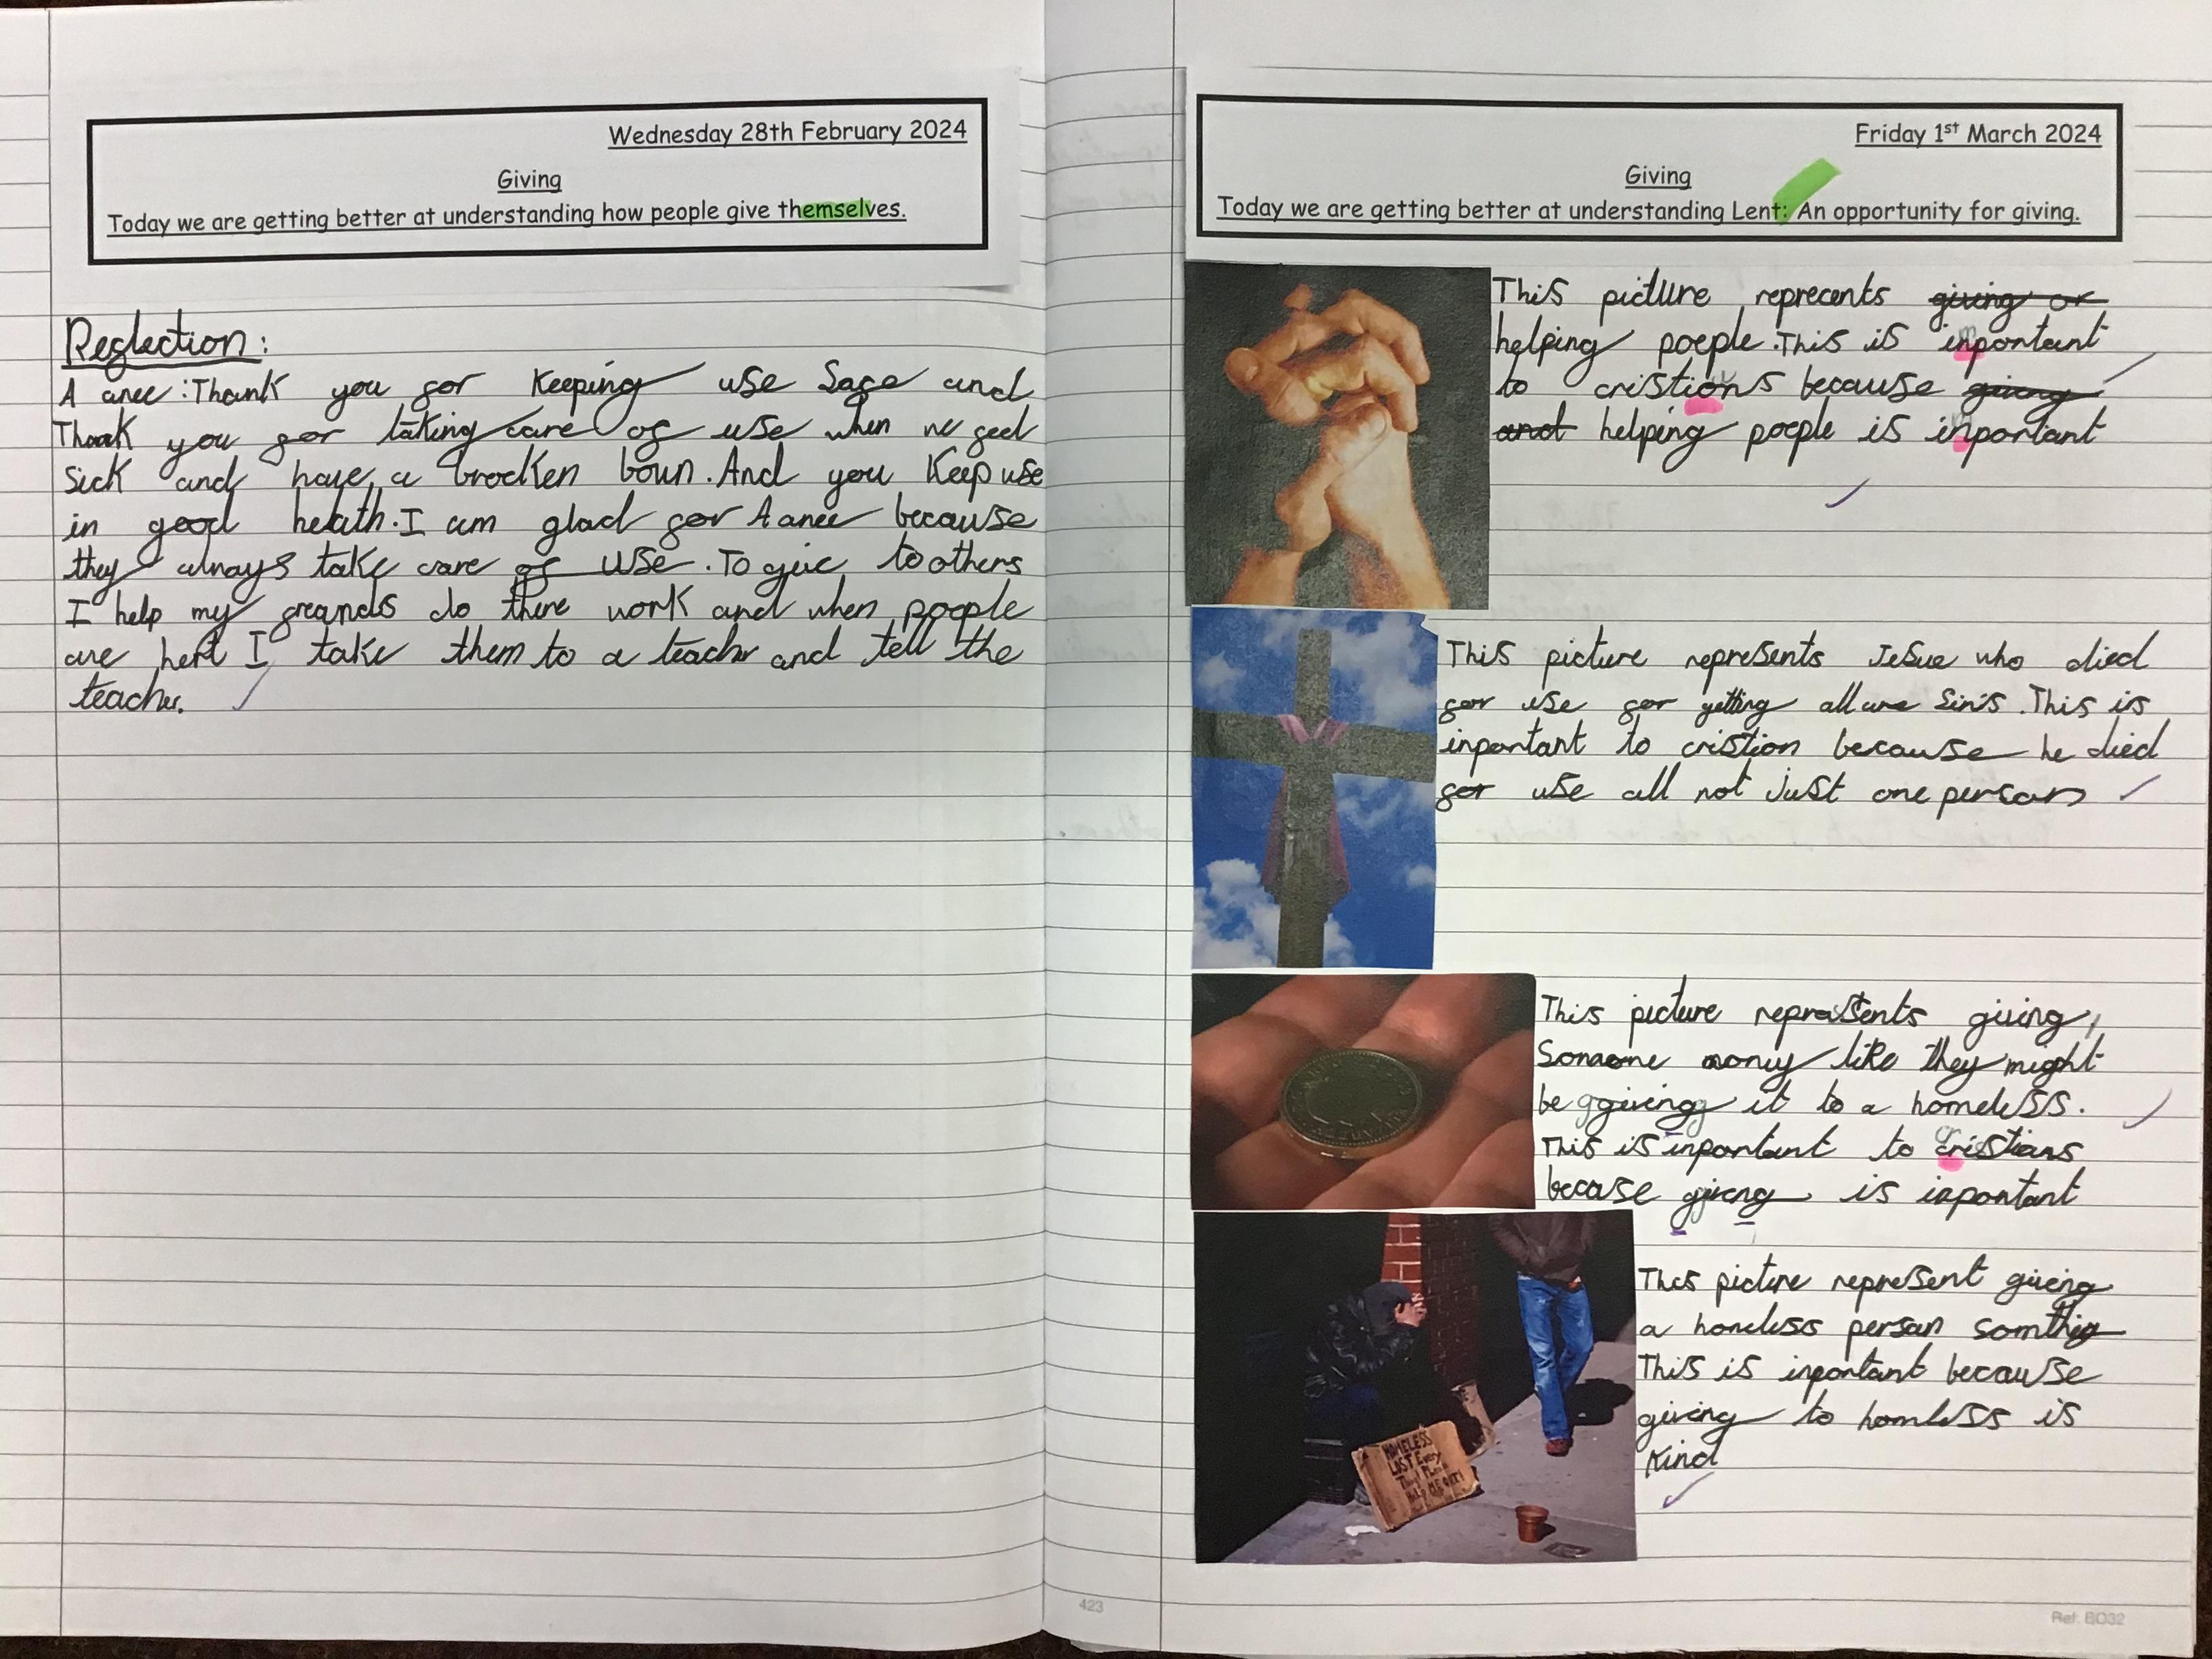 Wednesday 28th February 2024
Giving
Today we are getting better at understanding how people give themselves.
Reglection:
A anee :Thank you gor Keeping use Sage and
Thank you gor taking care og use when we geel
Sick and have a brocken boun. And you Keep use
in good health. I am glad gor A anee because
they always take care og use. To give to others
I help my greands do there work and when poeple
are hert I take them to a teacher and tell the
teacher.
Friday 1st March 2024
Giving
Today we are getting better at understanding Lent: An opportunity for giving.
This picture reprecents giving or
helping poeple. This is inportant
to cristions because giving
and helping poeple is inportant
This picture represents Jesue who died
gor use gor getting all are Sin's. This is
inportant to cristion because he died
gor use all not Just one person
This picture represents giving
Someone money like they might
be giving it to a homeless.
This is inportant to cristians
becase giveng is inportant
This picture represent giveng
a homeless person somthig
This is inportant because
giving to homless is
Kind
HOMELESS
LOST Every
Thing Please
Help ME OUT!
423
Ref: BO32